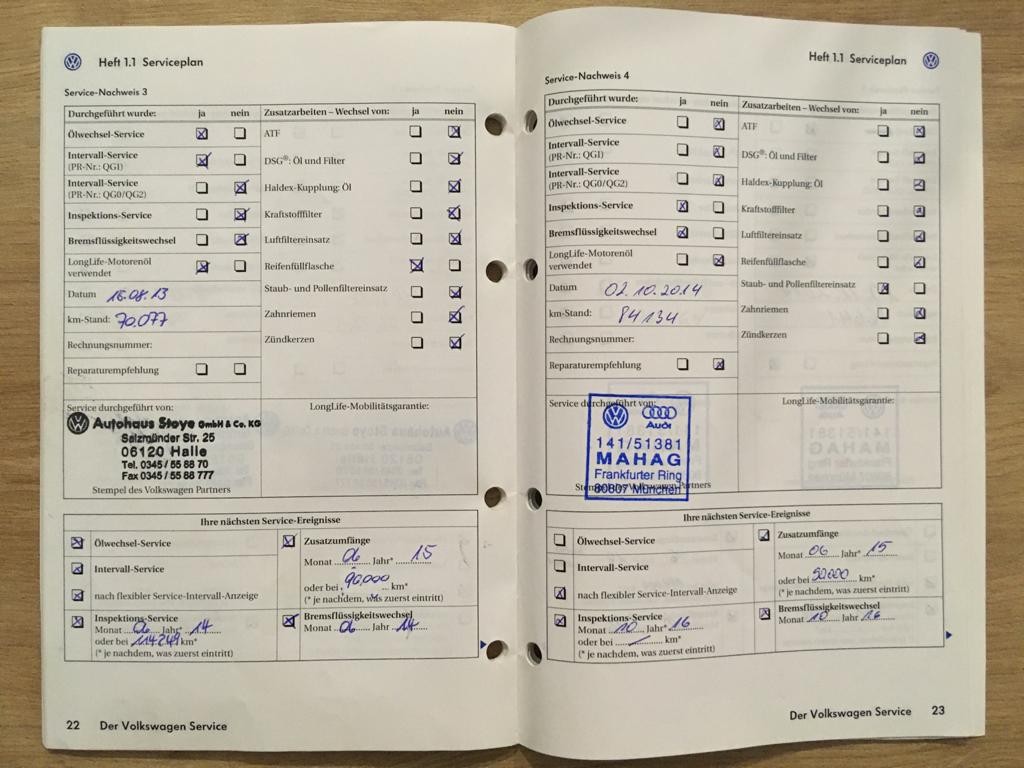 Heft 1.1 Serviceplan
Service-Nachweis 3
Durchgeführt wurde: ja nein Zusatzarbeiten – Wechsel von: ja nein
Ölwechsel-Service ATF
Intervall-Service
(PR-Nr.: QG1) DSG®: Öl und Filter
Intervall-Service
(PR-Nr.: QG0/QG2) Haldex-Kupplung: Öl
Inspektions-Service Kraftstofffilter
Bremsflüssigkeitswechsel Luftfiltereinsatz
LongLife-Motorenöl
verwendet Reifenfüllflasche
Datum 16.08.13 Staub- und Pollenfiltereinsatz
km-Stand: 70.077 Zahnriemen
Rechnungsnummer: Zündkerzen
Reparaturempfehlung
Service durchgeführt von: LongLife-Mobilitätsgarantie:
Autohaus Stoye GmbH & Co. KG
Salzmünder Str. 25
06120 Halle
Tel. 0345 / 55 88 70
Fax 0345 / 55 88 777
Stempel des Volkswagen Partners
Ihre nächsten Service-Ereignisse
Ölwechsel-Service Zusatzumfänge
Monat 06 Jahr* 15
Intervall-Service
oder bei 90.000 km*
nach flexibler Service-Intervall-Anzeige (* je nachdem, was zuerst eintritt)
Inspektions-Service Bremsflüssigkeitswechsel
Monat 06 Jahr 14 Monat 06 Jahr 14
oder bei km*
(* je nachdem, was zuerst eintritt)
22 Der Volkswagen Service
Heft 1.1 Serviceplan
Service-Nachweis 4
Durchgeführt wurde: ja nein Zusatzarbeiten – Wechsel von: ja nein
Ölwechsel-Service ATF
Intervall-Service
(PR-Nr.: QG1) DSG®: Öl und Filter
Intervall-Service
(PR-Nr.: QG0/QG2) Haldex-Kupplung: Öl
Inspektions-Service Kraftstofffilter
Bremsflüssigkeitswechsel Luftfiltereinsatz
LongLife-Motorenöl
verwendet Reifenfüllflasche
Datum 02.10.2014 Staub- und Pollenfiltereinsatz
km-Stand: 84134 Zahnriemen
Rechnungsnummer: Zündkerzen
Reparaturempfehlung
Service durchgeführt von: LongLife-Mobilitätsgarantie:
Audi
141/51381
MAHAG
Frankfurter Ring
80807 München
Stempel des Volkswagen Partners
Ihre nächsten Service-Ereignisse
Ölwechsel-Service Zusatzumfänge
Monat 06 Jahr* 15
Intervall-Service
oder bei km*
nach flexibler Service-Intervall-Anzeige (* je nachdem, was zuerst eintritt)
Inspektions-Service Bremsflüssigkeitswechsel
Monat 10 Jahr* 16 Monat 10 Jahr 16
oder bei km*
(* je nachdem, was zuerst eintritt)
Der Volkswagen Service 23